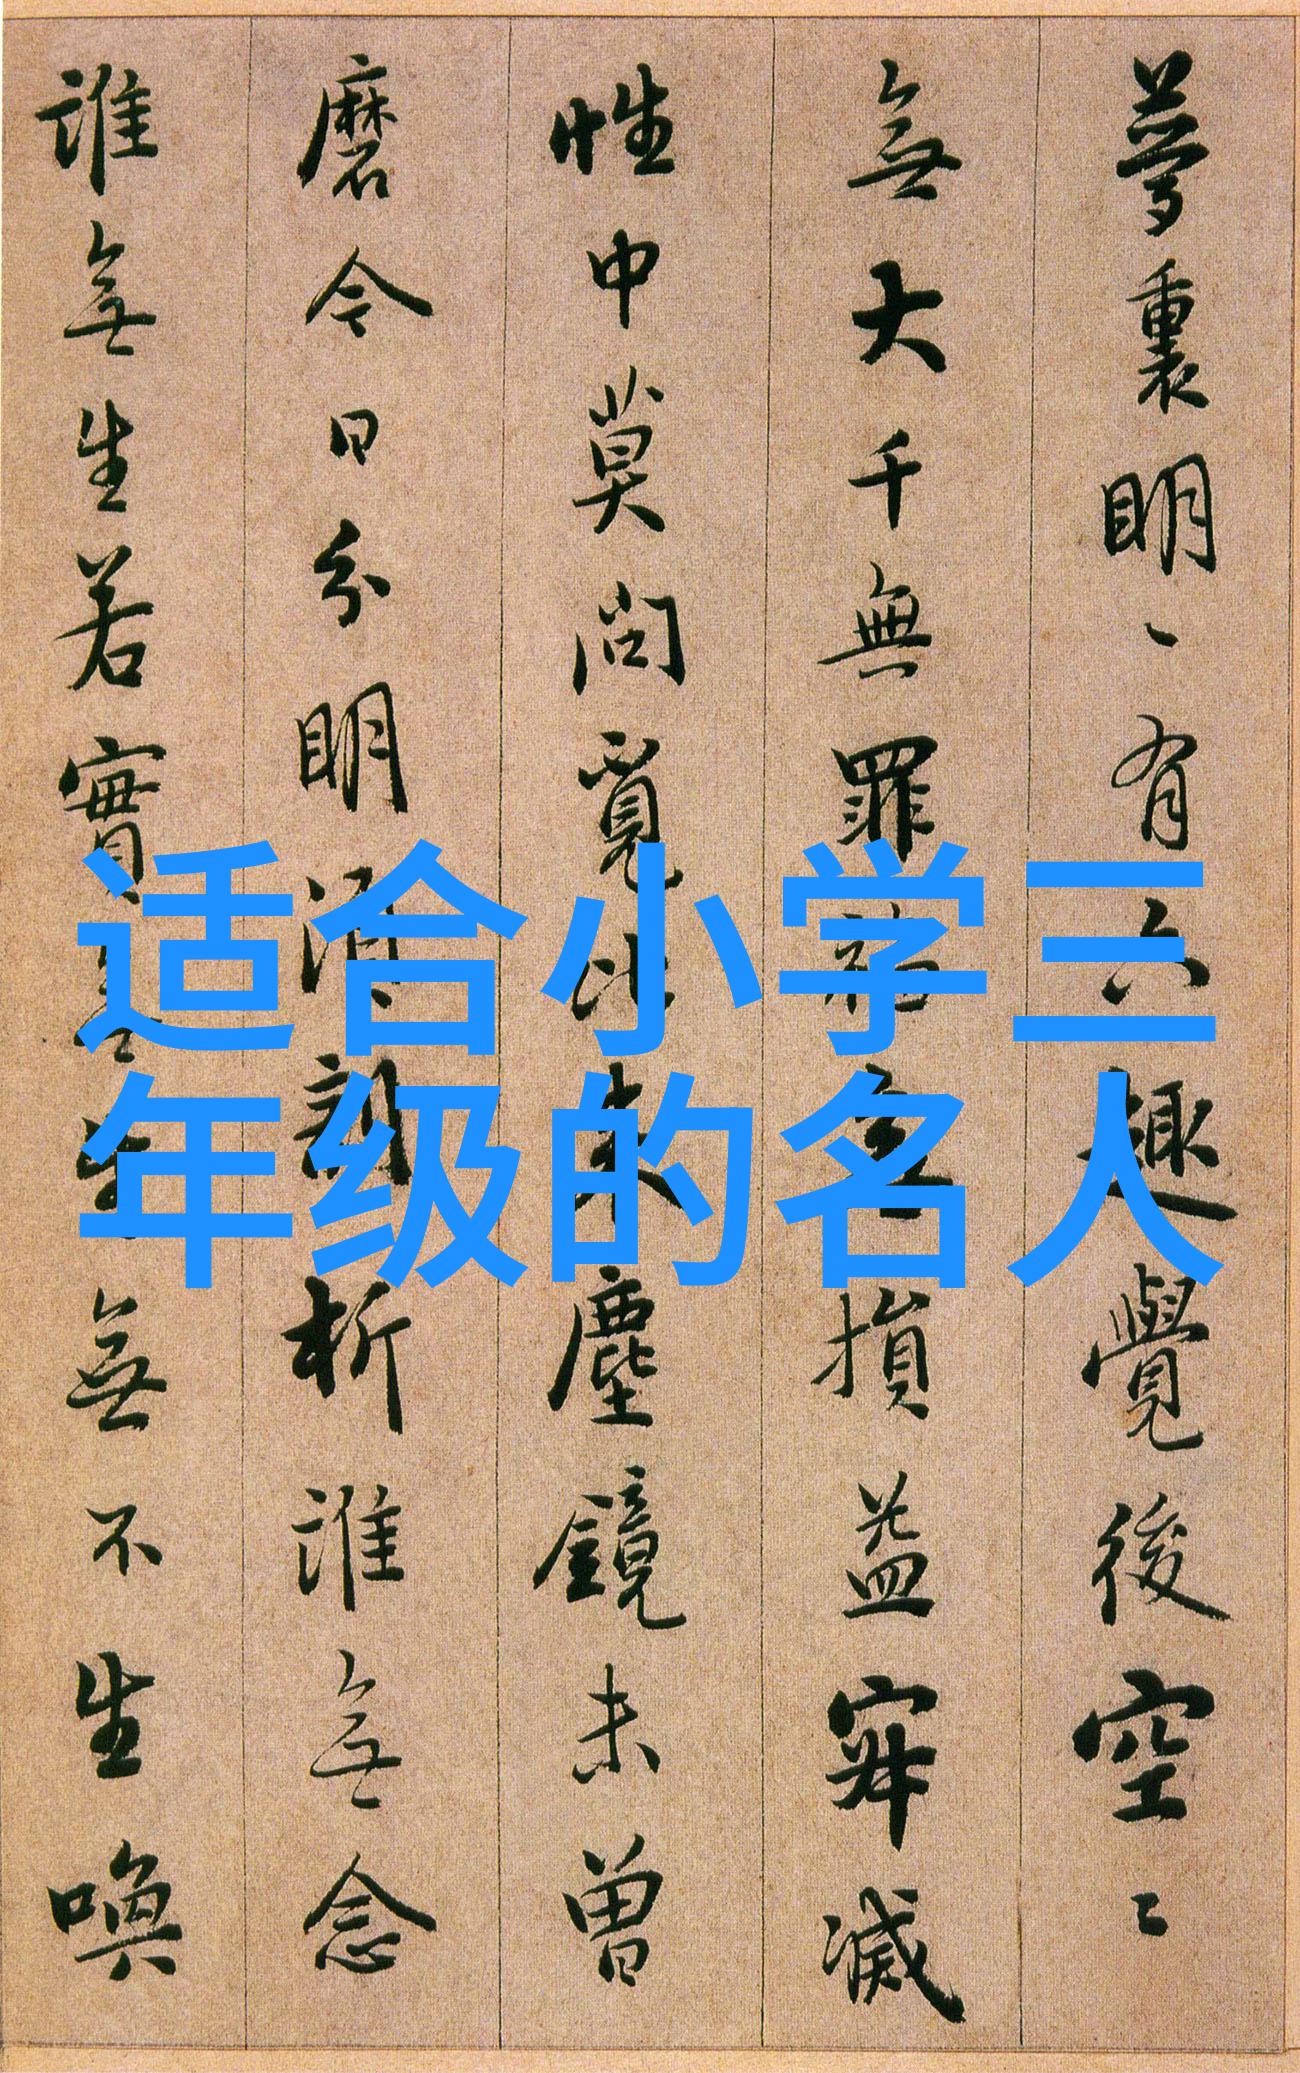 夢裏明明有六趣覺後空空
無大千無罪福無損益寂滅
性中莫問覓比来塵鏡未曾
磨今日分明須剖析誰無念
誰無生若實無生無不生喚
适合小学三
年级的名人